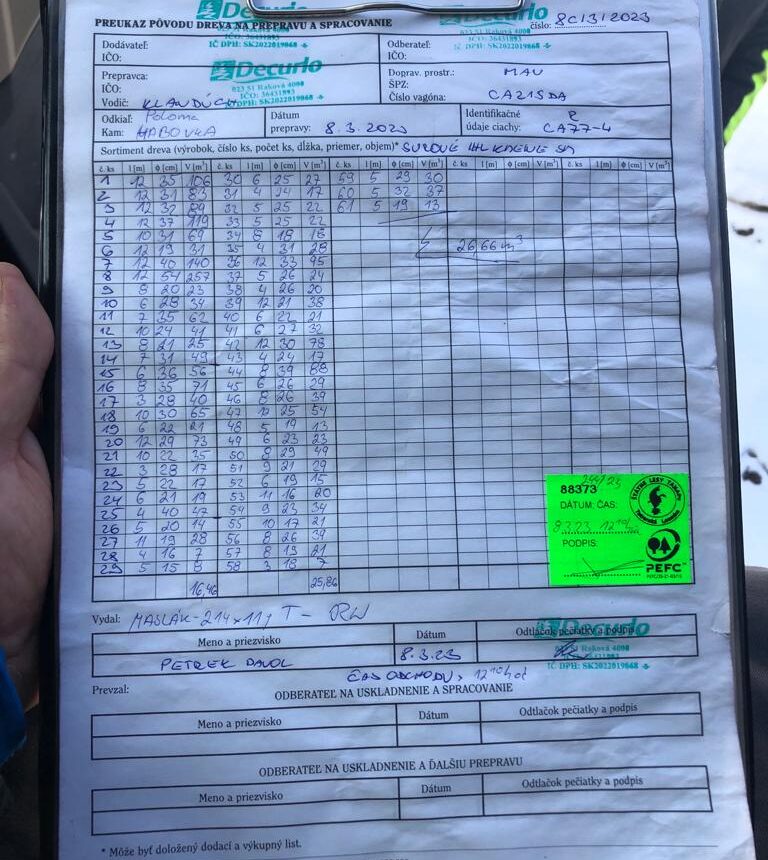 Decurlo
PREUKAZ PÔVODU DREVA NA PREPRAVU A SPRACOVANIE
číslo: 8C/3/2023
Dodávateľ:
IČO:
IČ DPH: SK2022019868
Odberateľ:
IČO:
Prepravca:
IČO:
Vodič: KLANDÚCH
Decurlo
023 51 Raková 4000
IČO: 36431893
IČ DPH: SK2022019868
Doprav. prostr.: MAU
ŠPZ:
Číslo vagóna: CA215DA
Odkiaľ: Poloma
Kam: HABOVKA
Dátum
prepravy: 8.3.2023
Identifikačné R
údaje ciachy: CA77-4
Sortiment dreva (výrobok, číslo ks, počet ks, dĺžka, priemer, objem)* SUROVÉ
č. ks l [m] ϕ [cm] V [m³] č. ks l [m] ϕ [cm] V [m³] č. ks l [m] ϕ [cm] V [m³] č. ks l [m] ϕ [cm] V [m³] č. ks l [m] ϕ [cm] V [m³]
1 12 35 106 30 6 25 27 59 5 29 30
2 12 31 83 31 4 24 17 60 5 32 37
3 12 32 89 32 5 25 22 61 5 19 13
4 12 37 119 33 5 25 22
5 10 31 69 34 8 18 18
6 12 19 31 35 4 31 28
26,66 m³
7 12 40 140 36 12 33 95
8 12 54 257 37 5 26 24
9 8 20 23 38 4 26 20
10 6 28 34 39 12 21 38
11 7 35 62 40 6 22 21
12 10 24 41 41 6 27 32
13 8 21 25 42 12 30 78
14 7 31 49 43 4 24 17
15 6 36 56 44 8 39 88
16 8 35 71 45 6 26 29
17 3 28 40 46 8 26 39
18 10 30 65 47 12 25 54
19 6 22 21 48 5 19 13
20 12 29 73 49 6 23 23
21 10 22 35 50 8 29 49
22 3 28 17 51 9 21 29
23 5 22 17 52 6 19 15
24 6 21 19 53 11 16 20
25 4 40 47 54 9 23 34
26 5 20 14 55 10 17 21
27 11 19 28 56 8 26 39
28 4 16 7 57 8 19 21
29 5 15 8 58 3 18 7
16,46 25,86
244/23
88373
DÁTUM: ČAS:
8.3.23 12¹⁰
PODPIS:
ŠTÁTNE LESY TANAPU
PEFC
Vydal: MASLÁK-214 x 11, T-
Meno a priezvisko
Dátum
Odtlačok pečiatky a podpis
PETREK 8.3.23
Decurlo
023 51 Raková 4000
IČ DPH: SK2022019868
ČAS ODCHODU, 12¹⁰ hod
Prevzal:
ODBERATEĽ NA USKLADNENIE A SPRACOVANIE
Meno a priezvisko
Dátum
Odtlačok pečiatky a podpis
ODBERATEĽ NA USKLADNENIE A ĎALŠIU PREPRAVU
Meno a priezvisko
Dátum
Odtlačok pečiatky a podpis
* Môže byť doložený dodací a výkupný list.